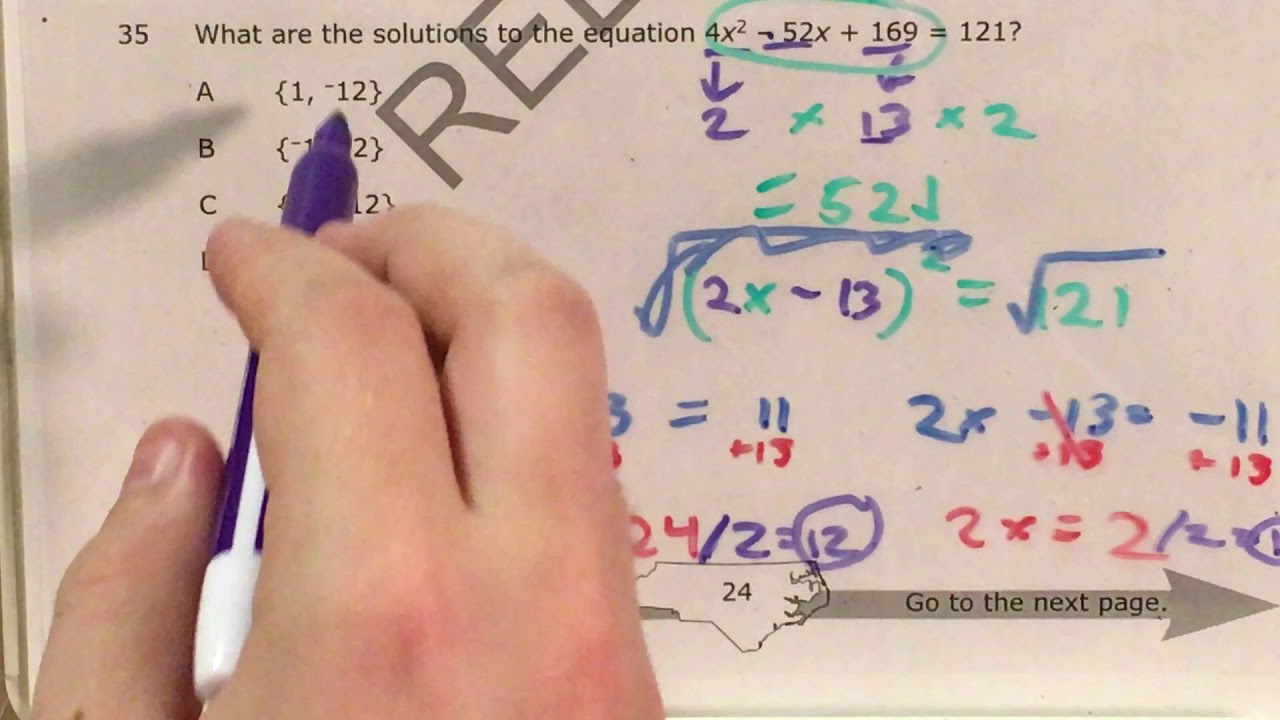 35 What are the solutions to the equation 4x² – 52x + 169 = 121?
A {1, ⁻12}
2 × 13 × 2
B
C
= 52
√(2x - 13)² = √121
= 11
2x - 13 = -11
+13
+13
+13
24/2 = 12
2x = 2/2 =
24
Go to the next page.